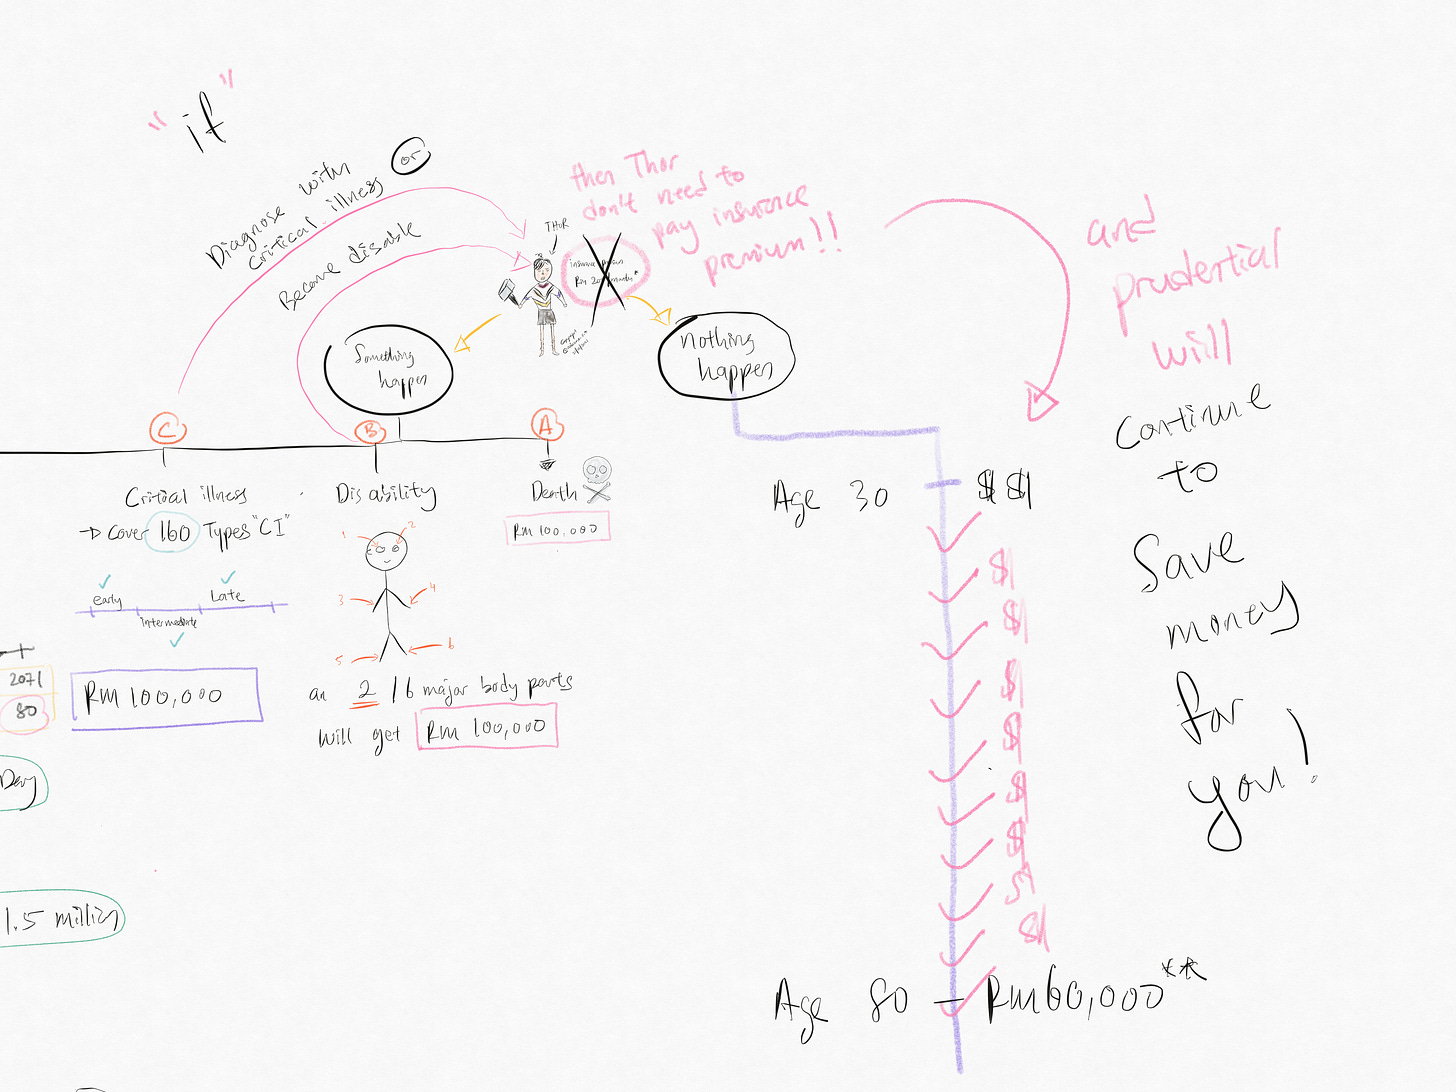 "if"
Diagnose with
critical illness
or
Become disable
THOR
then Thor
don't need to
pay insurance
premium!!
and
prudential
will
Continue
to
Save
money
for
you!
Something
happen
nothing
happen
C
B
A
Critical illness
→ Cover 160 Types "CI"
early
intermediate
Late
RM 100,000
Disability
1
2
3
4
5
6
an 2 / 6 major body parts
will get RM 100,000
Death
RM 100,000
2071
80
Day
1.5 million
Age 30
$$
$
$
$
$
$
$
$
$
Age 80 - RM60,000**